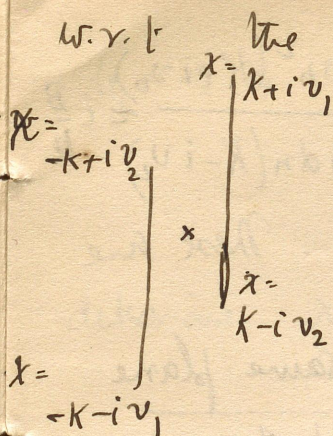 w.r.t the
x=
K+iv₁
x=
-K+iv₂
x
x=
K-iv₂
x=
-K-iv₁